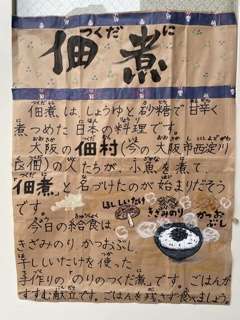 つくだに
佃煮
佃煮は、しょうゆと砂糖で甘辛く
煮つめた日本の料理です。
大阪の佃村(今の大阪市西淀川
区佃)の人たちが、小魚を煮て、
佃煮と名づけたのが始まりだそう
です。
ほししいたけ
きざみのり
かつおぶし
今日の給食は
きざみのり かつおぶし
干ししいたけを使った
手作りの「のりのつくだ煮」です。ごはんが
すすむ献立です。ごはんを残さず食べましょう。